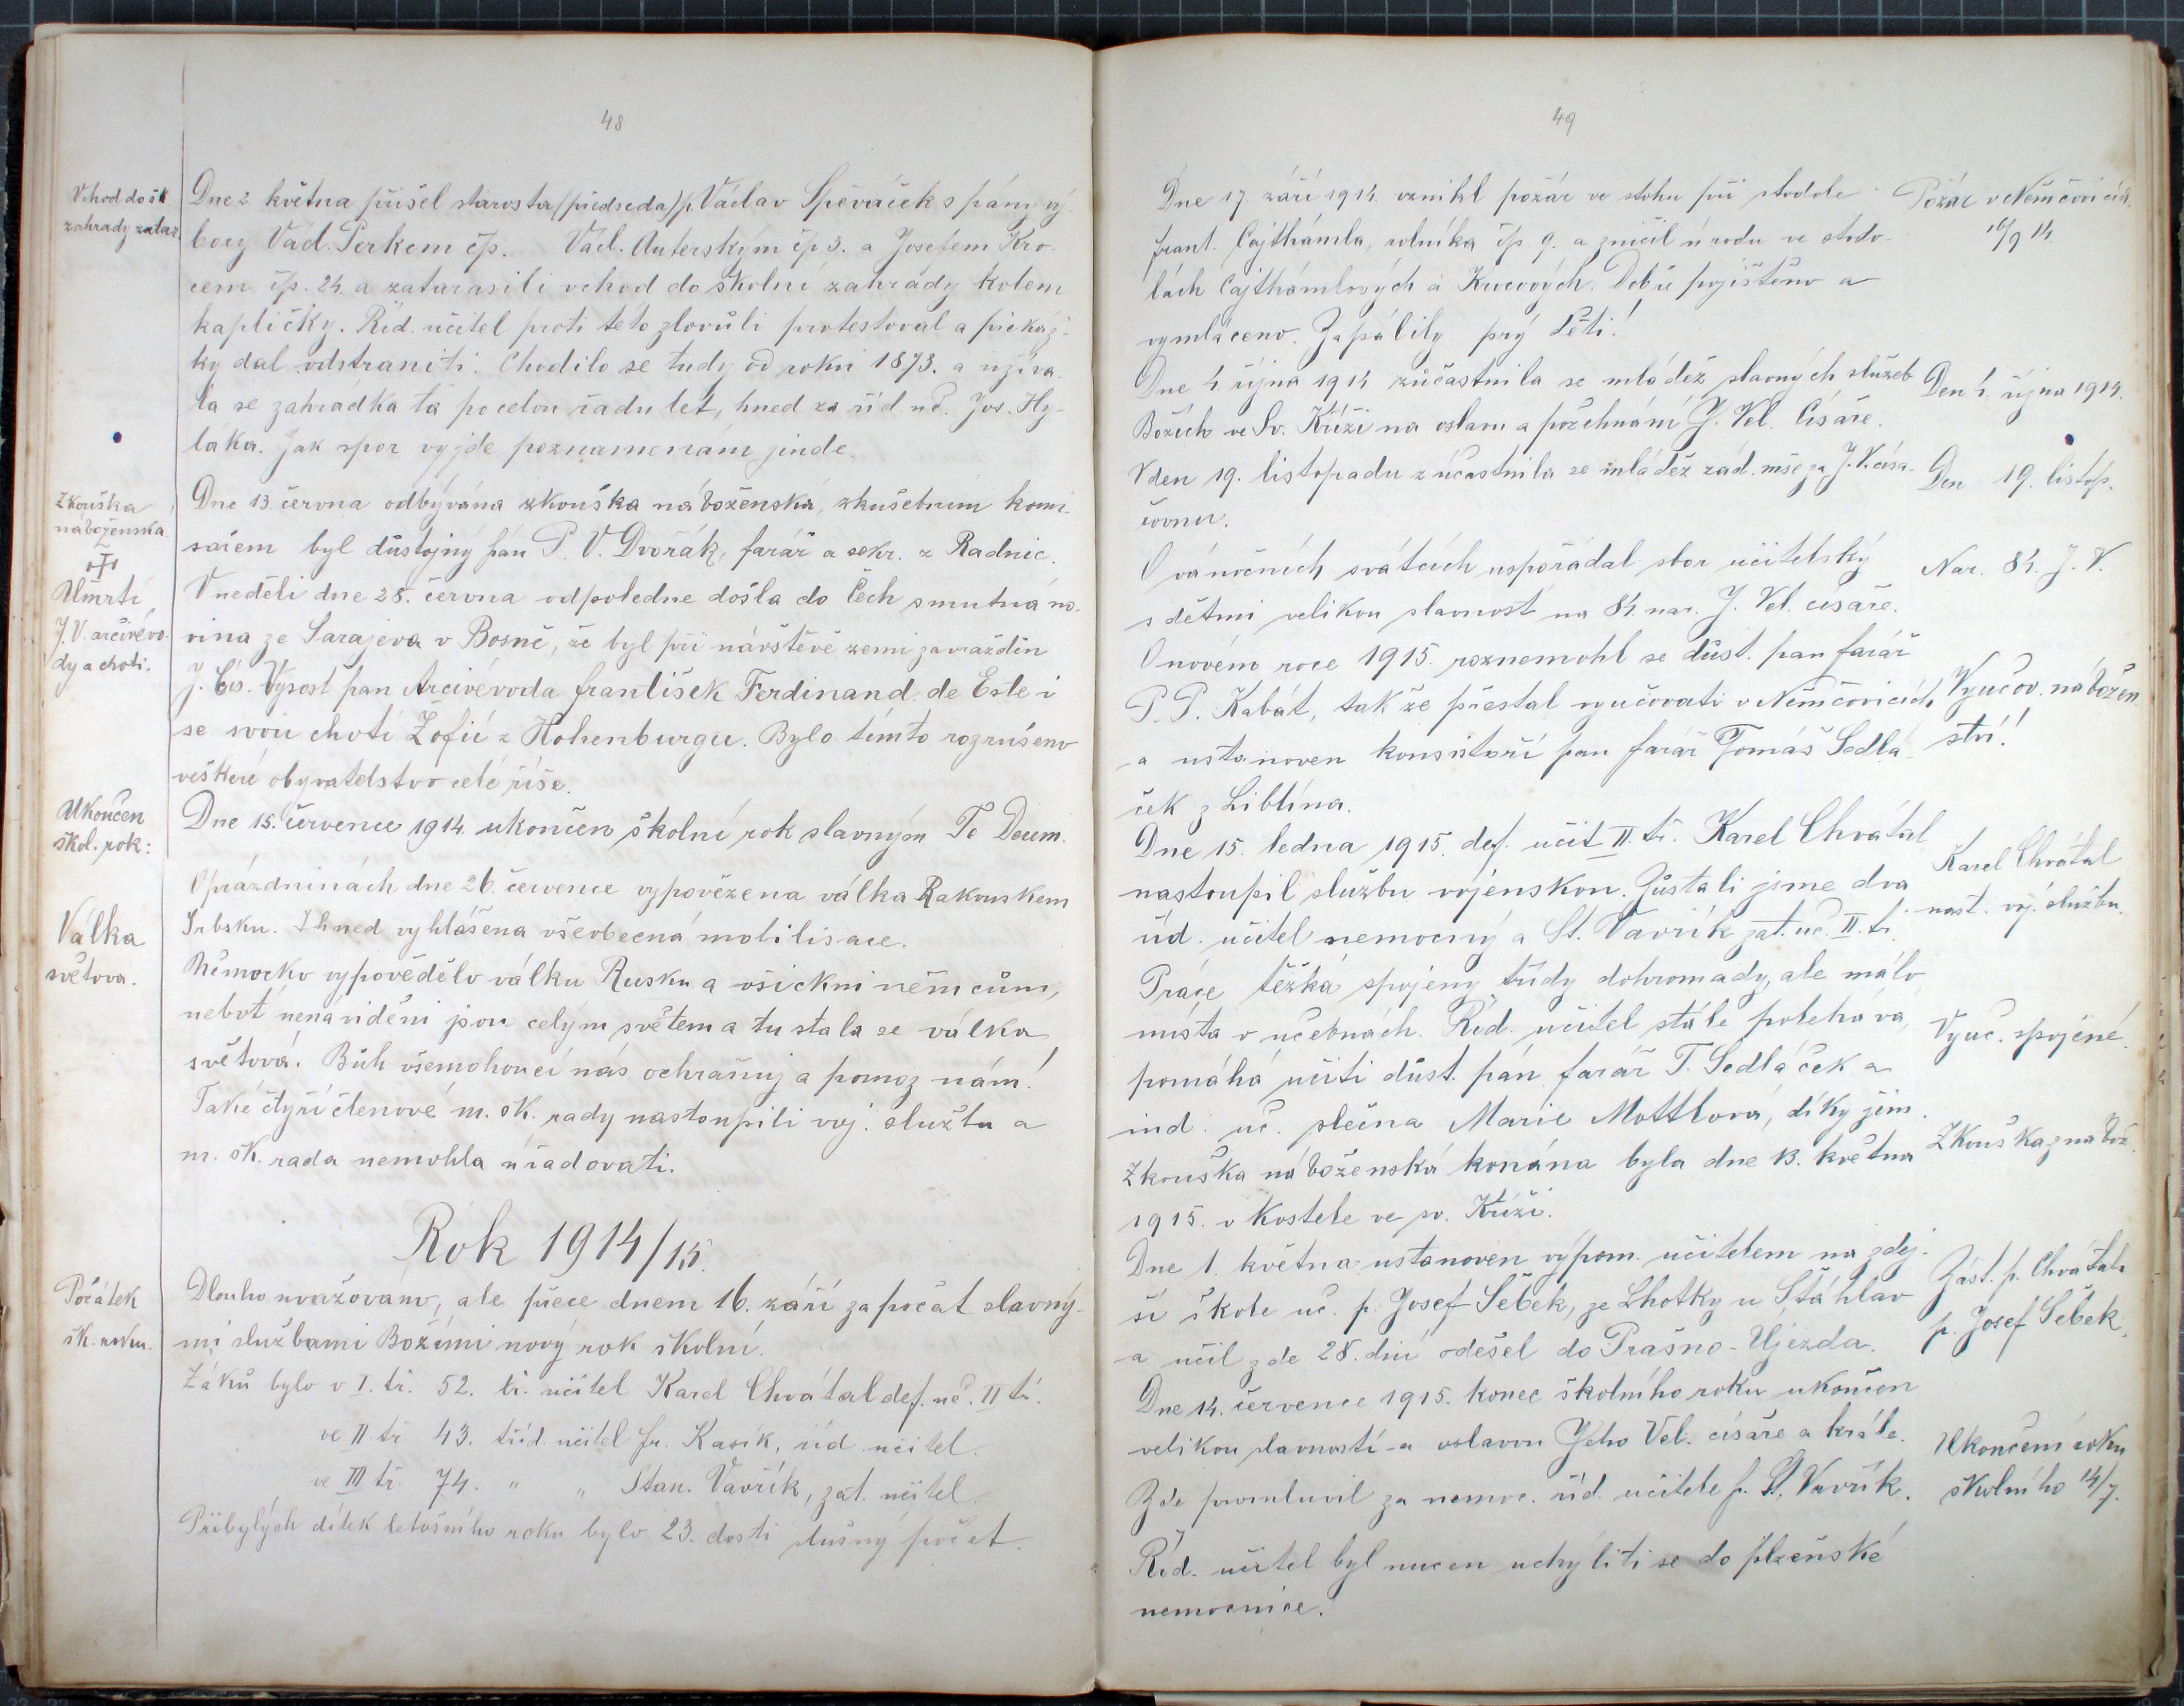 48
Vchod do šk.
zahrady zatar.
Dne 2 května přišel starosta (předseda) p. Václav Spěváček s pány vý-
bory Václ. Perkem čp. Václ. Auterským čp 3. a Josefem Kro-
cem čp. 24. a zatarasili vchod do školní zahrady kolem
kapličky. Říd. učitel proti této zlovůli protestoval a překáž-
ky dal odstraniti. Chodilo se tudy od roku 1873. a užíva-
la se zahrádka ta po celou řadu let, hned za říd. uč. Jos. Hy-
láka. Jak spor vyjde poznamenám jinde.
Zkouška
náboženská
Dne 13. června odbývána zkouška náboženská, zkušebním komi-
sařem byl důstojný pán P. V. Dvořák, farář a sekr. z Radnic.
Úmrtí
J. V. arcivévo-
dy a choti.
V neděli dne 28. června odpoledne došla do Čech smutná no-
vina ze Sarajeva v Bosně, že byl při návštěvě zemi zavražděn
J. Cís. Výsost pan Arcivévoda František Ferdinand de Este i
se svou chotí Žofií z Hohenburgu. Bylo tímto rozrušeno
veškeré obyvatelstvo celé říše.
Ukončen
škol. rok:
Dne 15. července 1914. ukončen školní rok slavným Te Deum.
Válka
světová.
O prázdninách dne 26. července vypovězena válka Rakouskem
Srbsku. Ihned vyhlášena všeobecná mobilisace.
Německo vypovědělo válku Rusku a všickni němcům,
neboť nenáviděni jsou celým světem a tu stala se válka
světová. Bůh všemohoucí nás ochraňuj a pomoz nám!
Také čtyři členové m. šk. rady nastoupili voj. službu a
m. šk. rada nemohla úřadovati.
Rok 1914/15.
Počátek
šk. roku.
Dlouho uvažováno, ale přece dnem 16. září započat slavný-
mi službami Božími nový rok školní.
Žáků bylo v I. tř. 52. tř. učitel Karel Chvátal def. uč. II tř.
ve II tř. 43. tříd. učitel Fr. Kasík, říd. učitel.
ve III tř. 74. " " Stan. Vavřík, zat. učitel.
Přibylých dítek letošního roku bylo 23. dosti slušný počet.
49
Dne 17. září 1914. vznikl požár ve stohu při stodole
Frant. Cajthámla, rolníka čp. 9. a zničil úrodu ve stodo-
lách Cajthámlových a Krocových. Dobře pojištěno a
vymláceno. Zapálily prý děti!
Požár v Němčovicích.
16/9 14.
Dne 4. října 1914 zúčastnila se mládež slavných služeb
Božích ve Sv. Kříži na oslavu a požehnání J. Vel. Císaře.
Den 4. října 1914.
V den 19. listopadu zúčastnila se mládež zád. mše za J. V. císa-
řovnu.
Den 19. listop.
O vánočních svátcích uspořádal sbor učitelský
s dětmi velikou slavnost na 84 nar. J. Vel. císaře.
Nar. 84. J. V.
O novém roce 1915. roznemohl se důst. pan farář
P. P. Kabát, tak že přestal vyučovati v Němčovicích
a ustanoven konsistoří pan farář Tomáš Sedlá-
ček z Liblína.
Vyučov. nábožen-
ství!
Dne 15. ledna 1915. def. učit II. tř. Karel Chvátal
nastoupil službu vojenskou. Zůstali jsme dva
říd. učitel nemocný a St. Vavřík zat. uč. II. tř.
Karel Chvátal
nast. voj. službu.
Práce těžká spojeny třídy dohromady, ale málo
místa v učebnách. Říd. učitel stále polehává
pomáhá učiti důst. pán farář T. Sedláček a
ind. uč. slečna Marie Mottlová, díky jim.
Vyuč. spojené.
Zkouška náboženská konána byla dne 13. května
1915. v Kostele ve sv. Kříži.
Zkouška z nábož.
Dne 1. května ustanoven výpom. učitelem na zdej-
ší škole uč. p. Josef Šebek, ze Lhotky u Štáhlav
a učil zde 28. dní odešel do Prašno-Újezda.
Zást. p. Chvátala
p. Josef Šebek.
Dne 14. července 1915. konec školního roku ukončen
velikou slavností a oslavou Jeho Vel. císaře a krále.
Zde promluvil za nemoc. říd. učitele p. St. Vavřík.
Ukončení roku
školního 14/7.
Říd. učitel byl nucen uchýliti se do plzeňské
nemocnice.